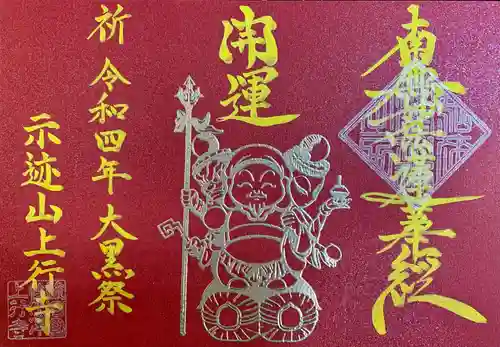 南無妙法蓮華経
開運
祈 令和四年 大黒祭
示迹山上行寺